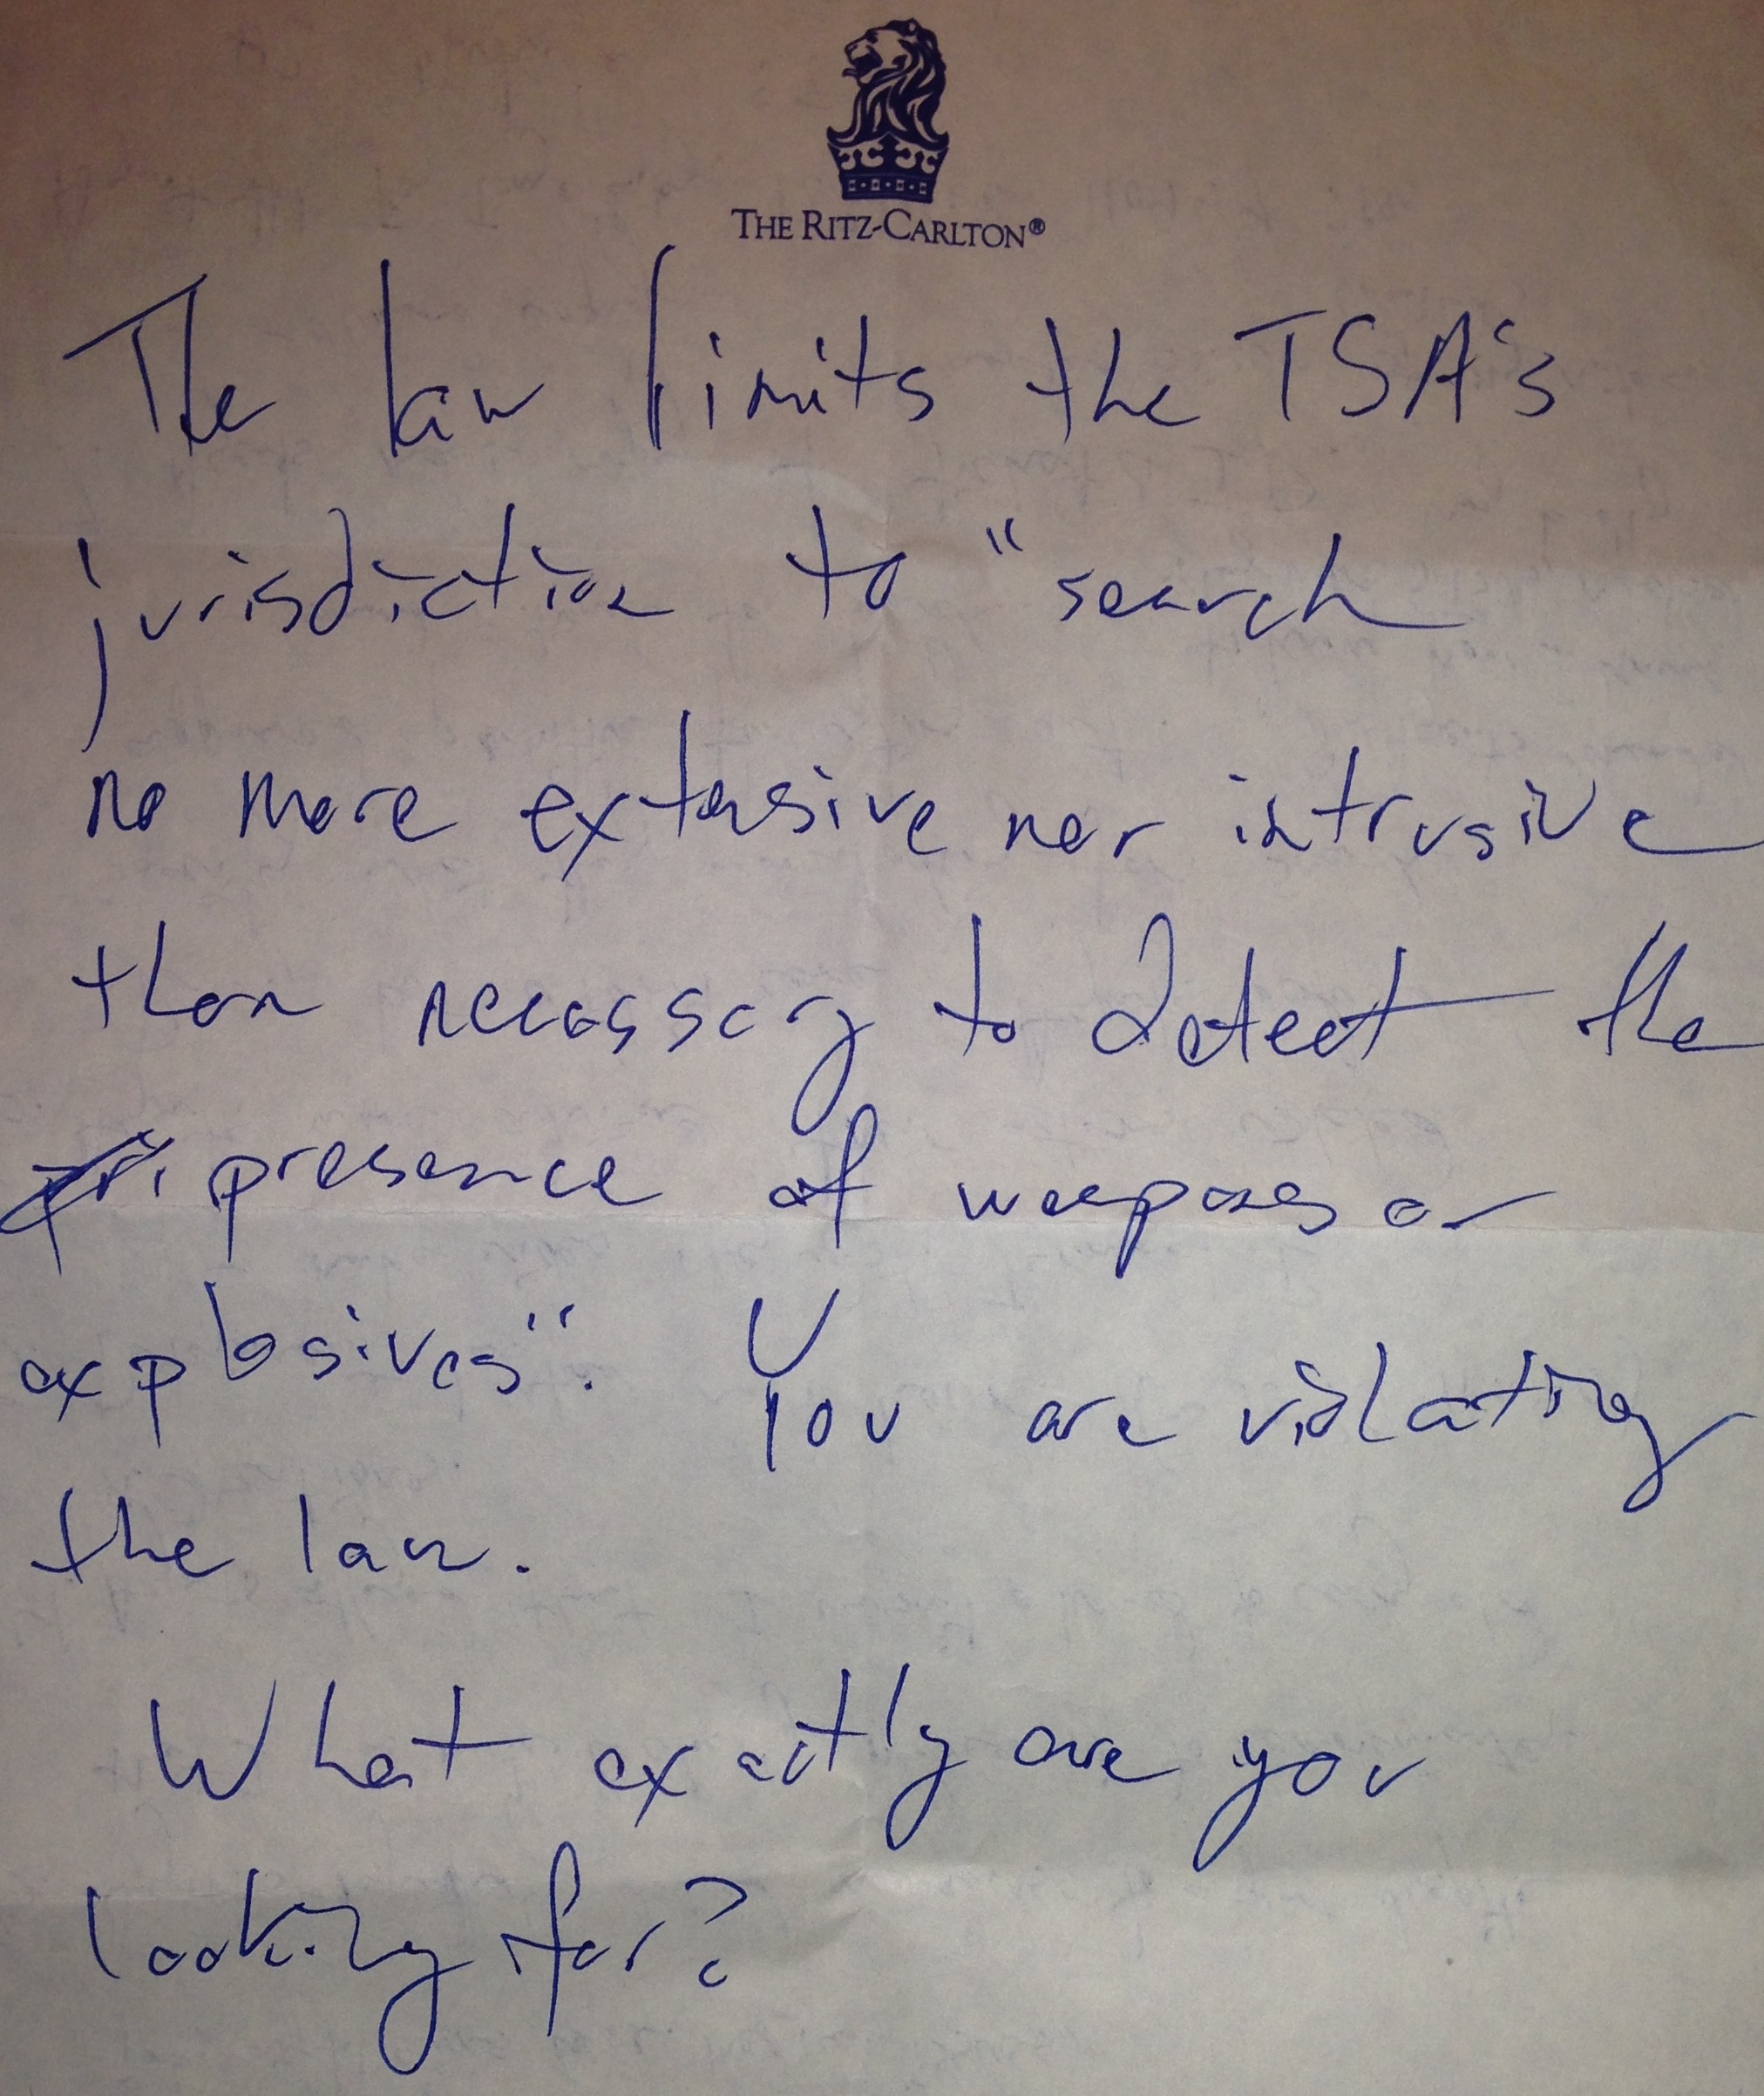 THE RITZ-CARLTON®
The law limits the TSA's
jurisdiction to "search
no more extensive nor intrusive
than necessary to detect the
pri presence of weapons or
explosives". You are violating
the law.
What exactly are you
looking for?